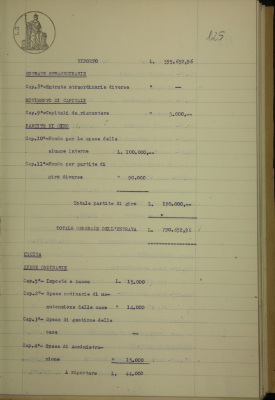 125
RIPORTO L. 595.652,56
ENTRATE STRAORDINARIE
Cap.8°-Entrate straordinarie diverse " --
MOVIMENTO DI CAPITALI
Cap.9°-Capitali da riscuotere " 5.000,--
PARTITE DI GIRO
Cap.10°-Fondo per le spese delle
alunne interne L. 100.000,--
Cap.11°-Fondo per partite di
giro diverse " 90.000
Totale partite di giro L. 190.000,--
TOTALE GENERALE DELL'ENTRATA L.
USCITA
SPESE ORDINARIE
Cap.1°- Imposte e tasse L. 15.000
Cap.2°- Spese ordinarie di ma-
nutenzione della casa " 14.000
Cap.3°- Spese di gestione della
casa --
Cap.4°- Spese di amministra-
zione " 15.000
A riportare L. 44.000